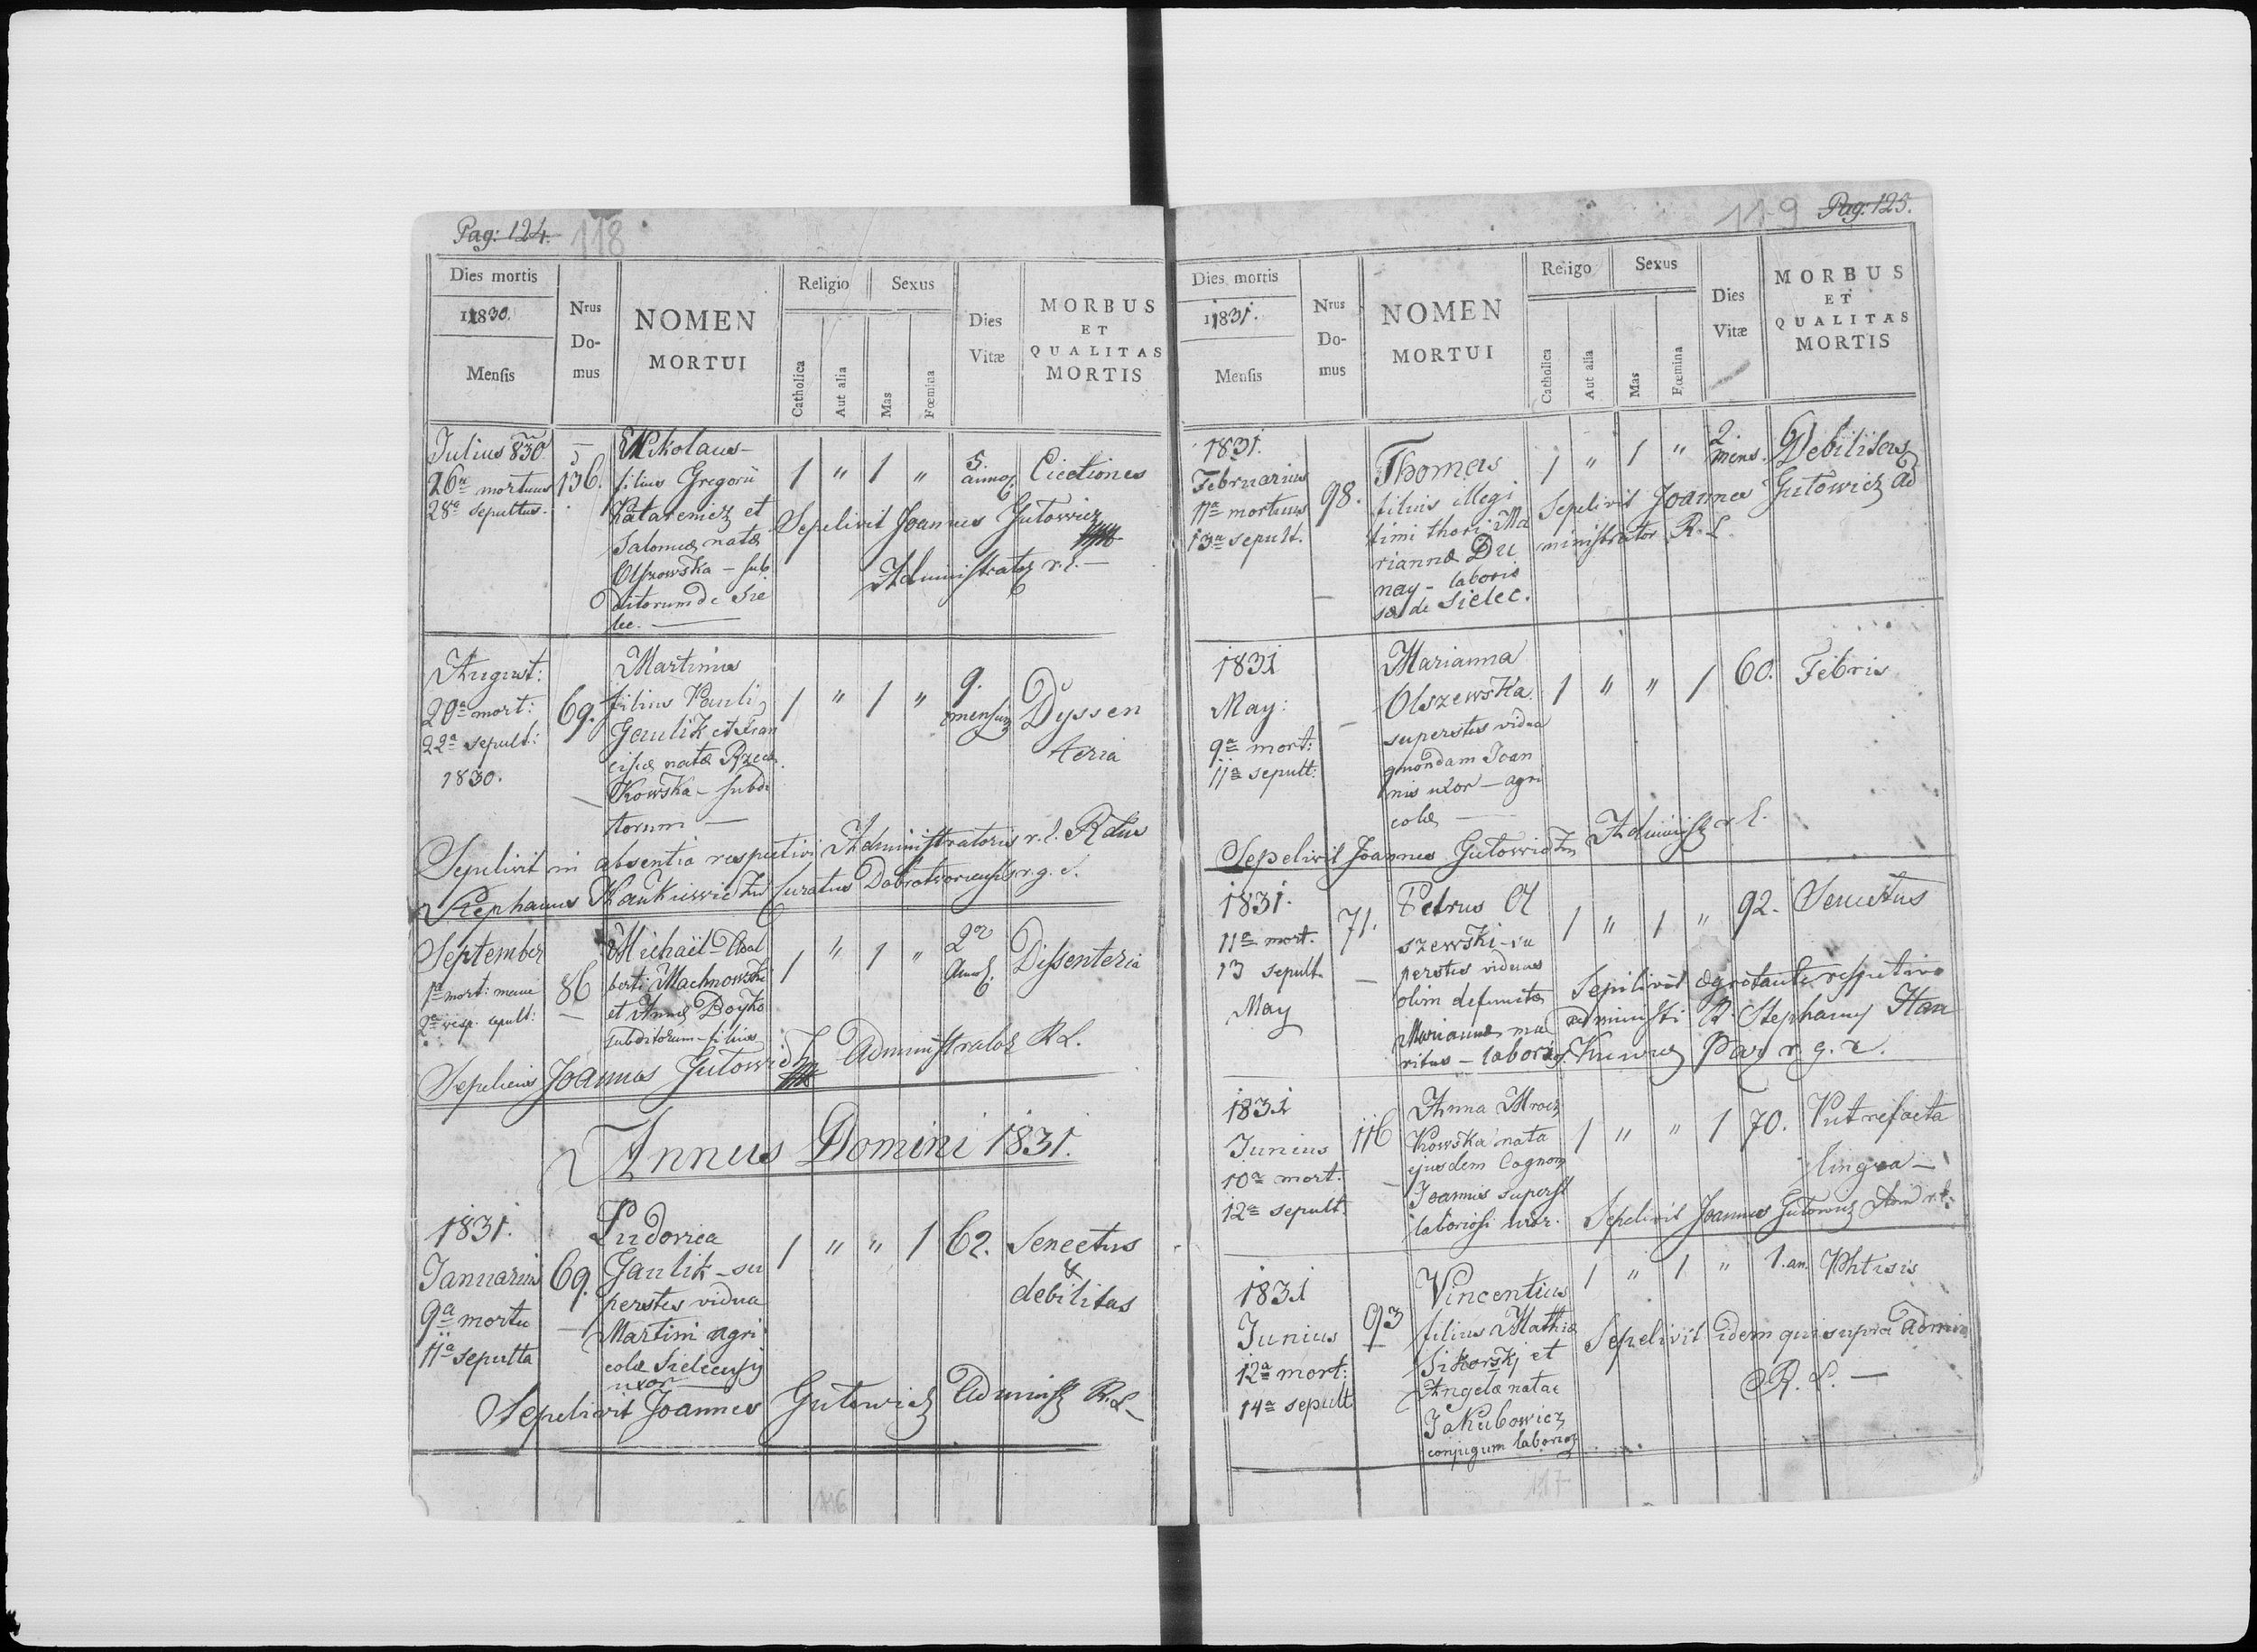 Pag: 124. 118
Dies mortis
1830.
Mensis
Nrus
Do-
mus
NOMEN
MORTUI
Religio
Catholica
Aut alia
Sexus
Mas
Fœmina
Dies
Vitæ
MORBUS
ET
QUALITAS
MORTIS
Julius 830
26a mortuus
28a sepultus.
136.
Nikolaus
filius Gregorii
Kataremicz et
Salomeæ natæ
Olszowska – sub
ditorum de Sie
lec.
1 " 1 "
5.
annoɽ
Sepelivit Joannes Gutowicz
Administrator r. l.
August:
20a mort:
22a sepult:
1830.
69.
Martinus
filius Pauli
Gaulik et Fran
ciscæ natæ Rzecz
Kowska – subdi
torum
1 " 1 "
9.
mensium
Dyssen
teria
Sepelivit in absentia respectivi Administratoris r. l. Rdus
Stephanus Curatus Dobrotworiensis r. g. c.
September
1a mort: mane
2a vesp. sepult:
86
Michaël Adal
berti Machnowski
et Annæ Boyko
subditorum filius
1 " 1 "
2
Annoɽ.
Dissenteria
Joannes Gutowicz Administrator R L.
Annus Domini 1831.
1831.
Januarius
9a mortu
11a sepulta
69.
Ludovica
Gaulik – su
perstes vidua
Martini agri
colæ Sielecensis
uxor
1 " " 1
62.
Senectus
&
debilitas
Sepelivit Joannes Gutowicz Administ R. L.
116
119 Pag: 125.
Dies mortis
1831.
Mensis
Nrus
Do-
mus
NOMEN
MORTUI
Religo
Catholica
Aut alia
Sexus
Mas
Fœmina
Dies
Vitæ
MORBUS
ET
QUALITAS
MORTIS
1831.
Februarius
11a mortuus
13a sepult.
98.
Thomas
filius illegi
timi thori Ma
riannæ Du
nay – laborio
sæ de Sielec.
1 " 1 "
2
mens.
Debilitas
Sepelivit Joannes Gutowicz Ad
ministrator R. L.
1831
May:
9a mort:
11a sepult:
Marianna
Olszewska
superstes vidua
quondam Joan
nis uxor – agri
colæ
1 " " 1
60.
Febris
Sepelivit Joannes Gutowicz Administ r. l.
1831.
11a mort.
13 sepult.
May
71.
Petrus Ol
szewski – su
perstes viduus
olim defunctæ
Mariannæ ma
ritus – labori
1 " 1 "
92.
Senectus
Sepilivit ægrotante respectivo
administ R. Stephanus Han
Kiewicz Par r. g. c.
1831
Junius
10a mort.
12a sepult.
116
Anna Mrocz
Kowska nata
ejusdem Cognom
Joannis superst
laboriosi uxor.
1 " " 1
70.
Putrefacta
lingva –
Sepelivit Joannes Gutowicz Adm r. l.
1831
Junius
12a mort:
14a sepult
93
Vincentius
filius Mathiæ
Sikorskj et
Angelæ natae
Jakubowicz
conjugum laborios
1 " 1 "
1. an.
Phtisis
Sepelivit idem qui supra Admin
R. L. –
117